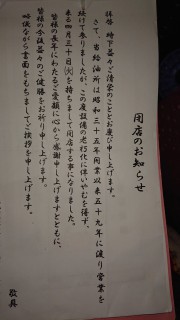 閉店のお知らせ
拝啓 時下益々ご清栄のこととお慶び申し上げます。
さて、当給油所は昭和三十五年開業以来五十九年に渡り営業を
続けて参りましたが、この度設備の老朽化に伴いやむを得ず、
来る四月三十日㈫を持ちまして閉店する事になりました。
皆様の長年にわたるご愛顧に心から感謝申し上げますとともに、
皆様の今後益々のご健勝をお祈り申し上げます。
略儀ながら書面をもちましてご挨拶を申し上げます。
敬具